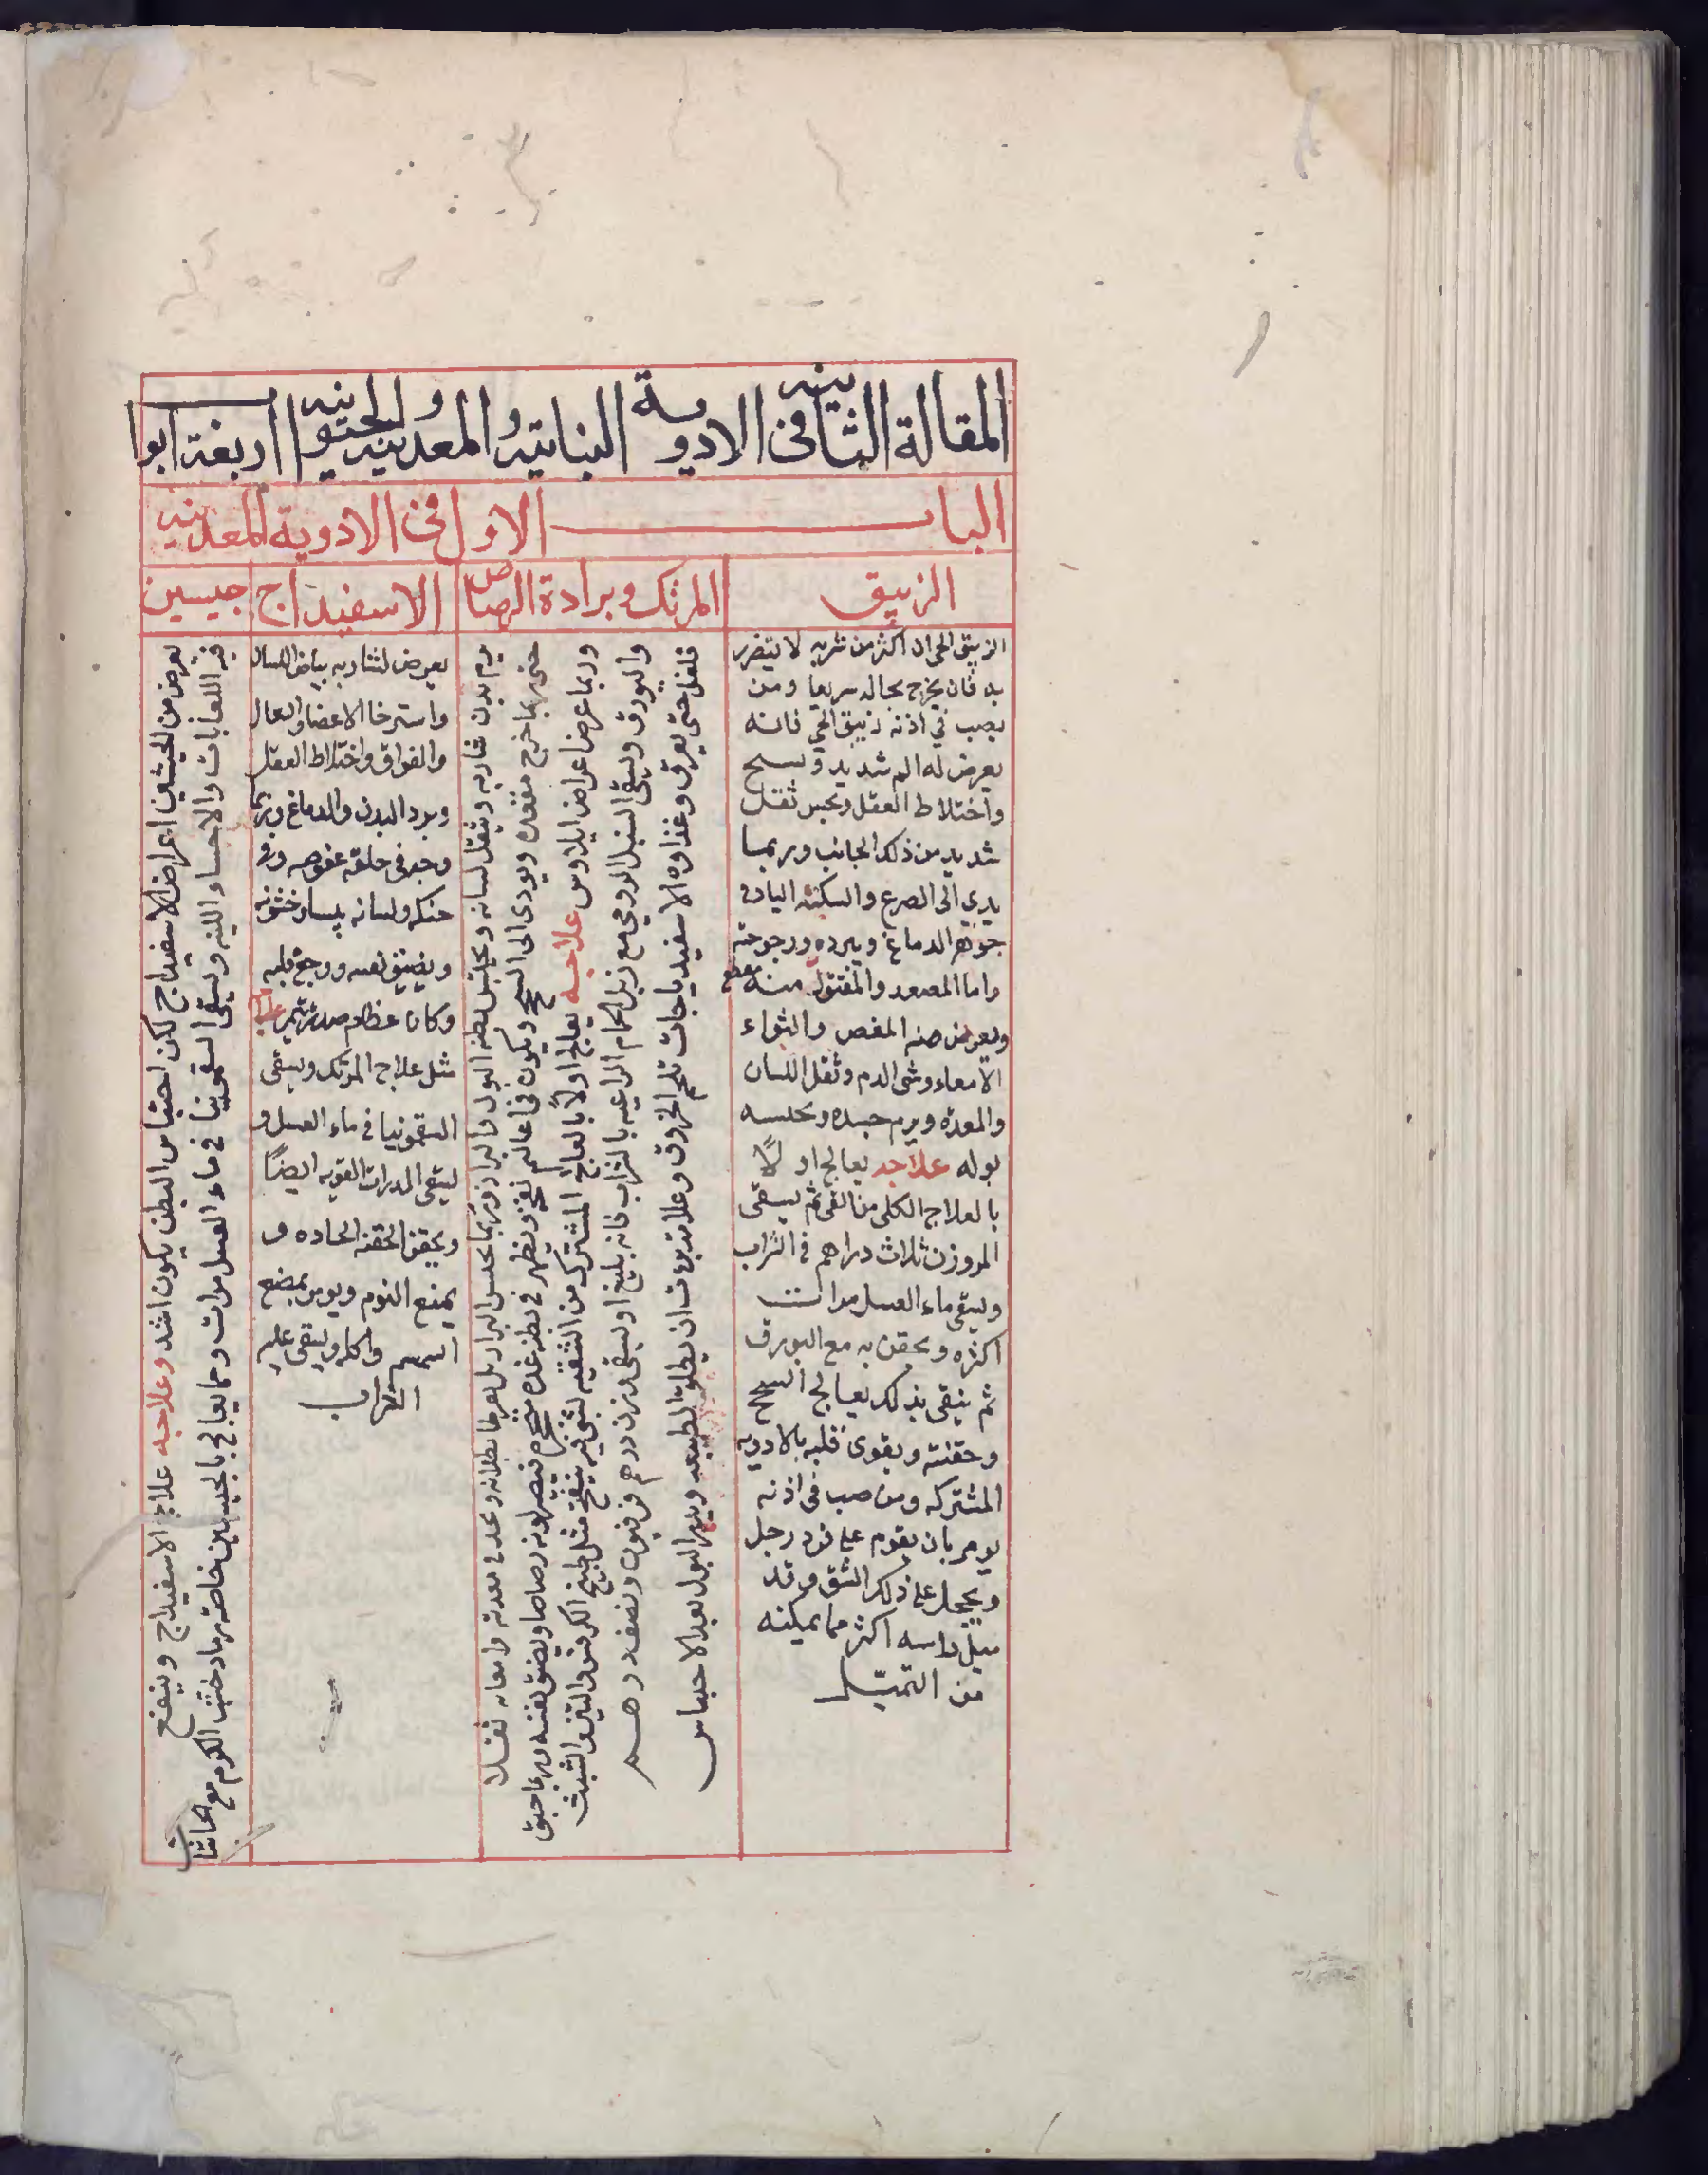 المقالة الثانية في الادوية النباتيه والمعدنيه والحيوانيه اربعة ابواب
الباب الاول في الادوية المعدنيه
الزيبق
المرتك وبرادة الرصاص
الاسفيداج
جبسين
الزيبق الحي ان اكثر من شربه لا يتضرر
به فان يخرج بحاله سريعا ومن
يصب في اذنه زيبق الحي فانه
يعرض له الم شديد و
واختلاط العقل ويحس ثقل
شديد من ذلك الجانب وربما
يدي الى الصرع والسكته
جوهر الدماغ وببرده ورجوجته
واما المصعد والمقتول منه
ويعرض منه المغص والتواء
الامعاء ومشي الدم وثقل اللسان
والمعدة ويرم جسده ويحتبس
بوله علاجه يعالج اولاً
بالعلاج الكلي من القي ثم يسقى
المر وزن ثلاث دراهم في الشراب
ويسقي ماء العسل مرات
اكثره ويحقن به مع البورق
ثم ينقي بذلك يعالج
وحقنته ويقوى قلبه بالادويه
المشتركه ومن صب في اذنه
يومر بان يقوم على فرد رجل
ويحجل على ذلك الشق وقد
ميل راسه اكثر مما يمكنه
من
يرم بدن شاربه ويثقل لسانه ويحتبس بطنه البول والبراز وربما يحتبس البراز بل ويجد في معدته وامعائه ثقلا
حتى ربما خرج مقعده ويودي الى السحج ويكون في اعاليه نفخ ويظهر في بطنه غده فيصير لونه رصاصيا ويضيق نفسه وربما خنق
وربما عرض اعراض ايلاوس علاجه يعالج اولا بالعلاج المشترك من التنقيه لشي فيه ينفخ مثل طبيخ الكرفس والتين والشبث
والبورق ويسقى السنبل الرومي مع زبل الحمام الراعيه بالشراب فانه بليغ او يسقى وزن درهم فرفيون ونصف درهم
فلفل حتى يعرق وغذاوه الاسفيدباجات بلحم الخروف وعلامة برءه ان يطلق الطبيعه ويدر البول بعد الاحتباس
يعرض لشاربه بياض اللسان
واسترخا الاعضا والسعال
والفواق واختلاط العقل
وبرد البدن والدماغ وربما
وجد في حلقه عفوصه وفي
حنكه ولسانه يبسا وخشونه
ويضيق نفسه ووجع قلبه
وكان عظام صدره
مثل علاج المرتك ويسقى
السقمونيا في ماء العسل و
يسقى المدرات القويه ايضًا
ويحقن الحقنه الحاده و
يمنع النوم ويومر بمضغ
السمسم واكله ويسقى عليه
الشراب
يعرض من الجبسين اعراض الاسفيداج لكن احتباس البطن يكون اشد وعلاجه علاج الاسفيداج وينفع
فيه اللعابات والاحساء اللينه ويسقى السقمونيا في ماء العسل مرات ومما يعالج بالجبسين خاصة رماد خشب الكرم مع الحاشا